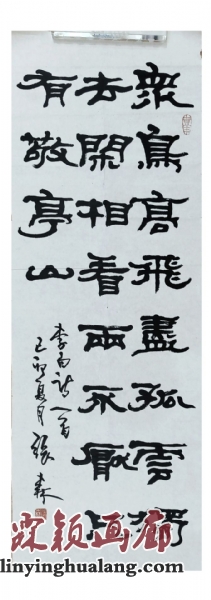 衆鳥高飛盡孤雲獨
去閑相看兩不厭只
有敬亭山
李白詩一首
己卯夏月 張森
颖画廊
linyinghualang.com